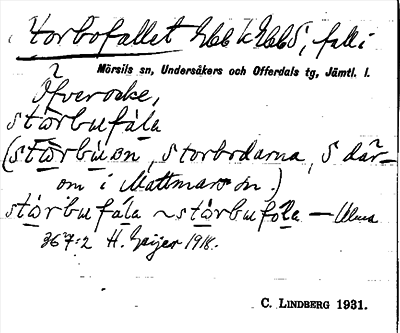 Storbofallet Ebb k Ebbs, fall i
Mörsils sn, Undersåkers och Offerdals tg, Jämtl. l.
Öfverocke,
stårbufåla
(stårbuan, storbodarna, S där-
om i Mattmars sn.)
stårbufåla ~ stårbufåla — Ulma
367:2 H. Geijer 1918.
C. LINDBERG 1931.